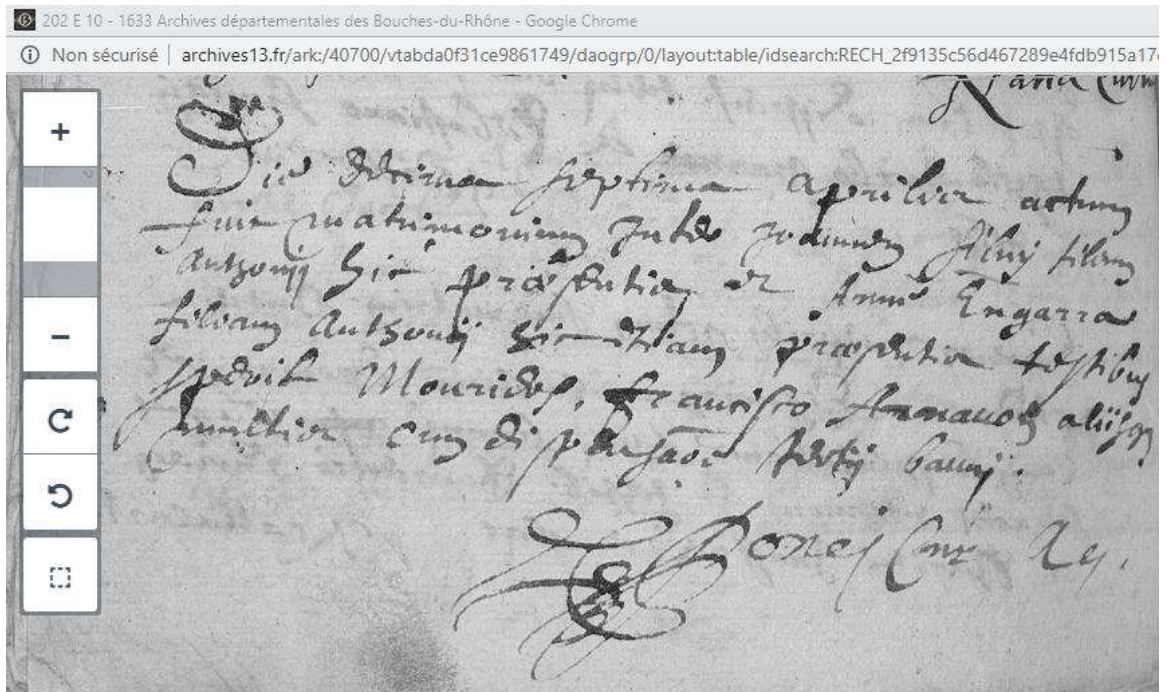 202 E 10 - 1633 Archives départementales des Bouches-du-Rhône - Google Chrome
Non sécurisé | archives13.fr/ark:/40700/vtabda0f31ce9861749/daogrp/0/layout:table/idsearch:RECH_2f9135c56d467289e4fdb915a17
Die decima septima aprilis actum
fuit matrimonium Inter Joannem filium
Anthonij hic præsentia et Anne Engarra
filiam Anthonij hic etiam præsentia testibus
Mourides, francisco aliisq
multis cum dispensaõe tertij banni.